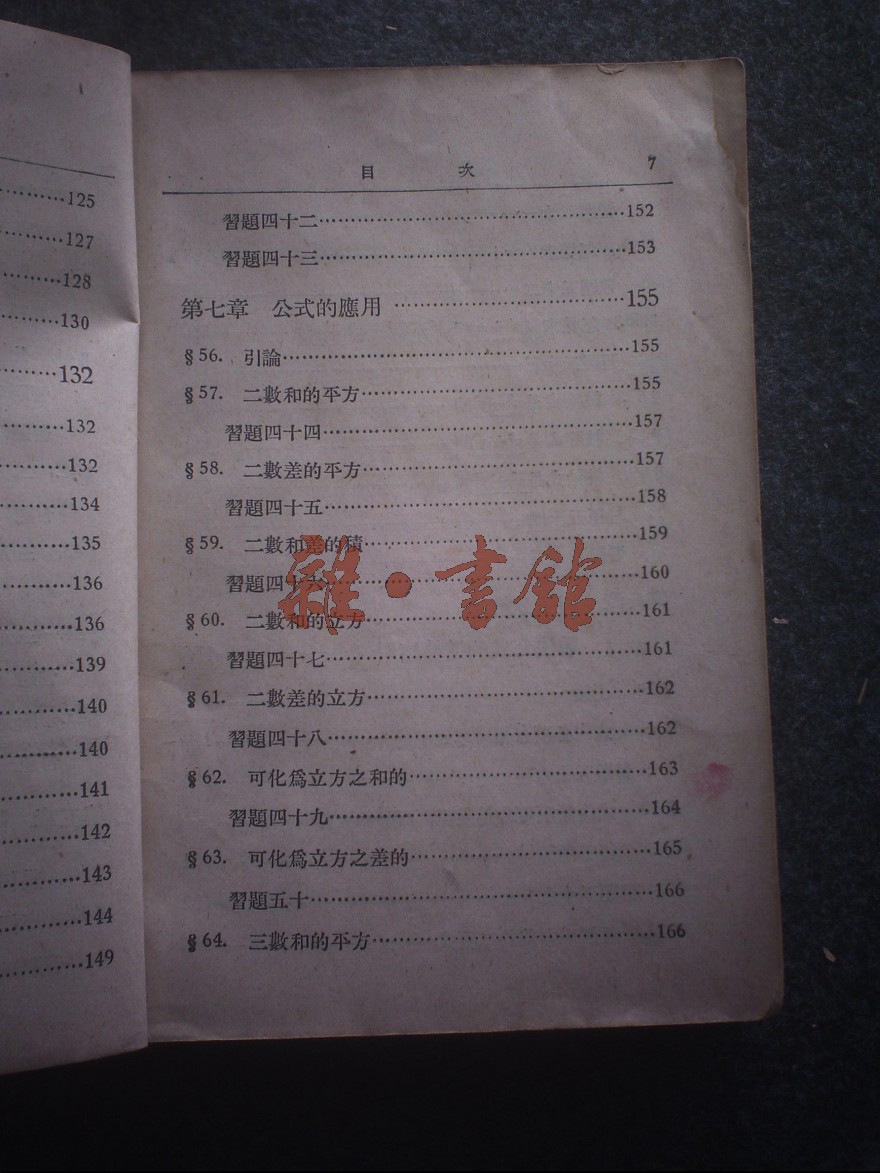 125
127
128
130
132
132
132
134
135
136
136
139
140
140
141
142
143
144
149
目 次 7
習題四十二……152
習題四十三……153
第七章 公式的應用……155
§56. 引論……155
§57. 二數和的平方……155
習題四十四……157
§58. 二數差的平方……157
習題四十五……158
§59. 二數和差的積……159
習題四十六……160
§60. 二數和的立方……161
習題四十七……161
§61. 二數差的立方……162
習題四十八……162
§62. 可化爲立方之和的……163
習題四十九……164
§63. 可化爲立方之差的……165
習題五十……166
§64. 三數和的平方……166
雜·書館